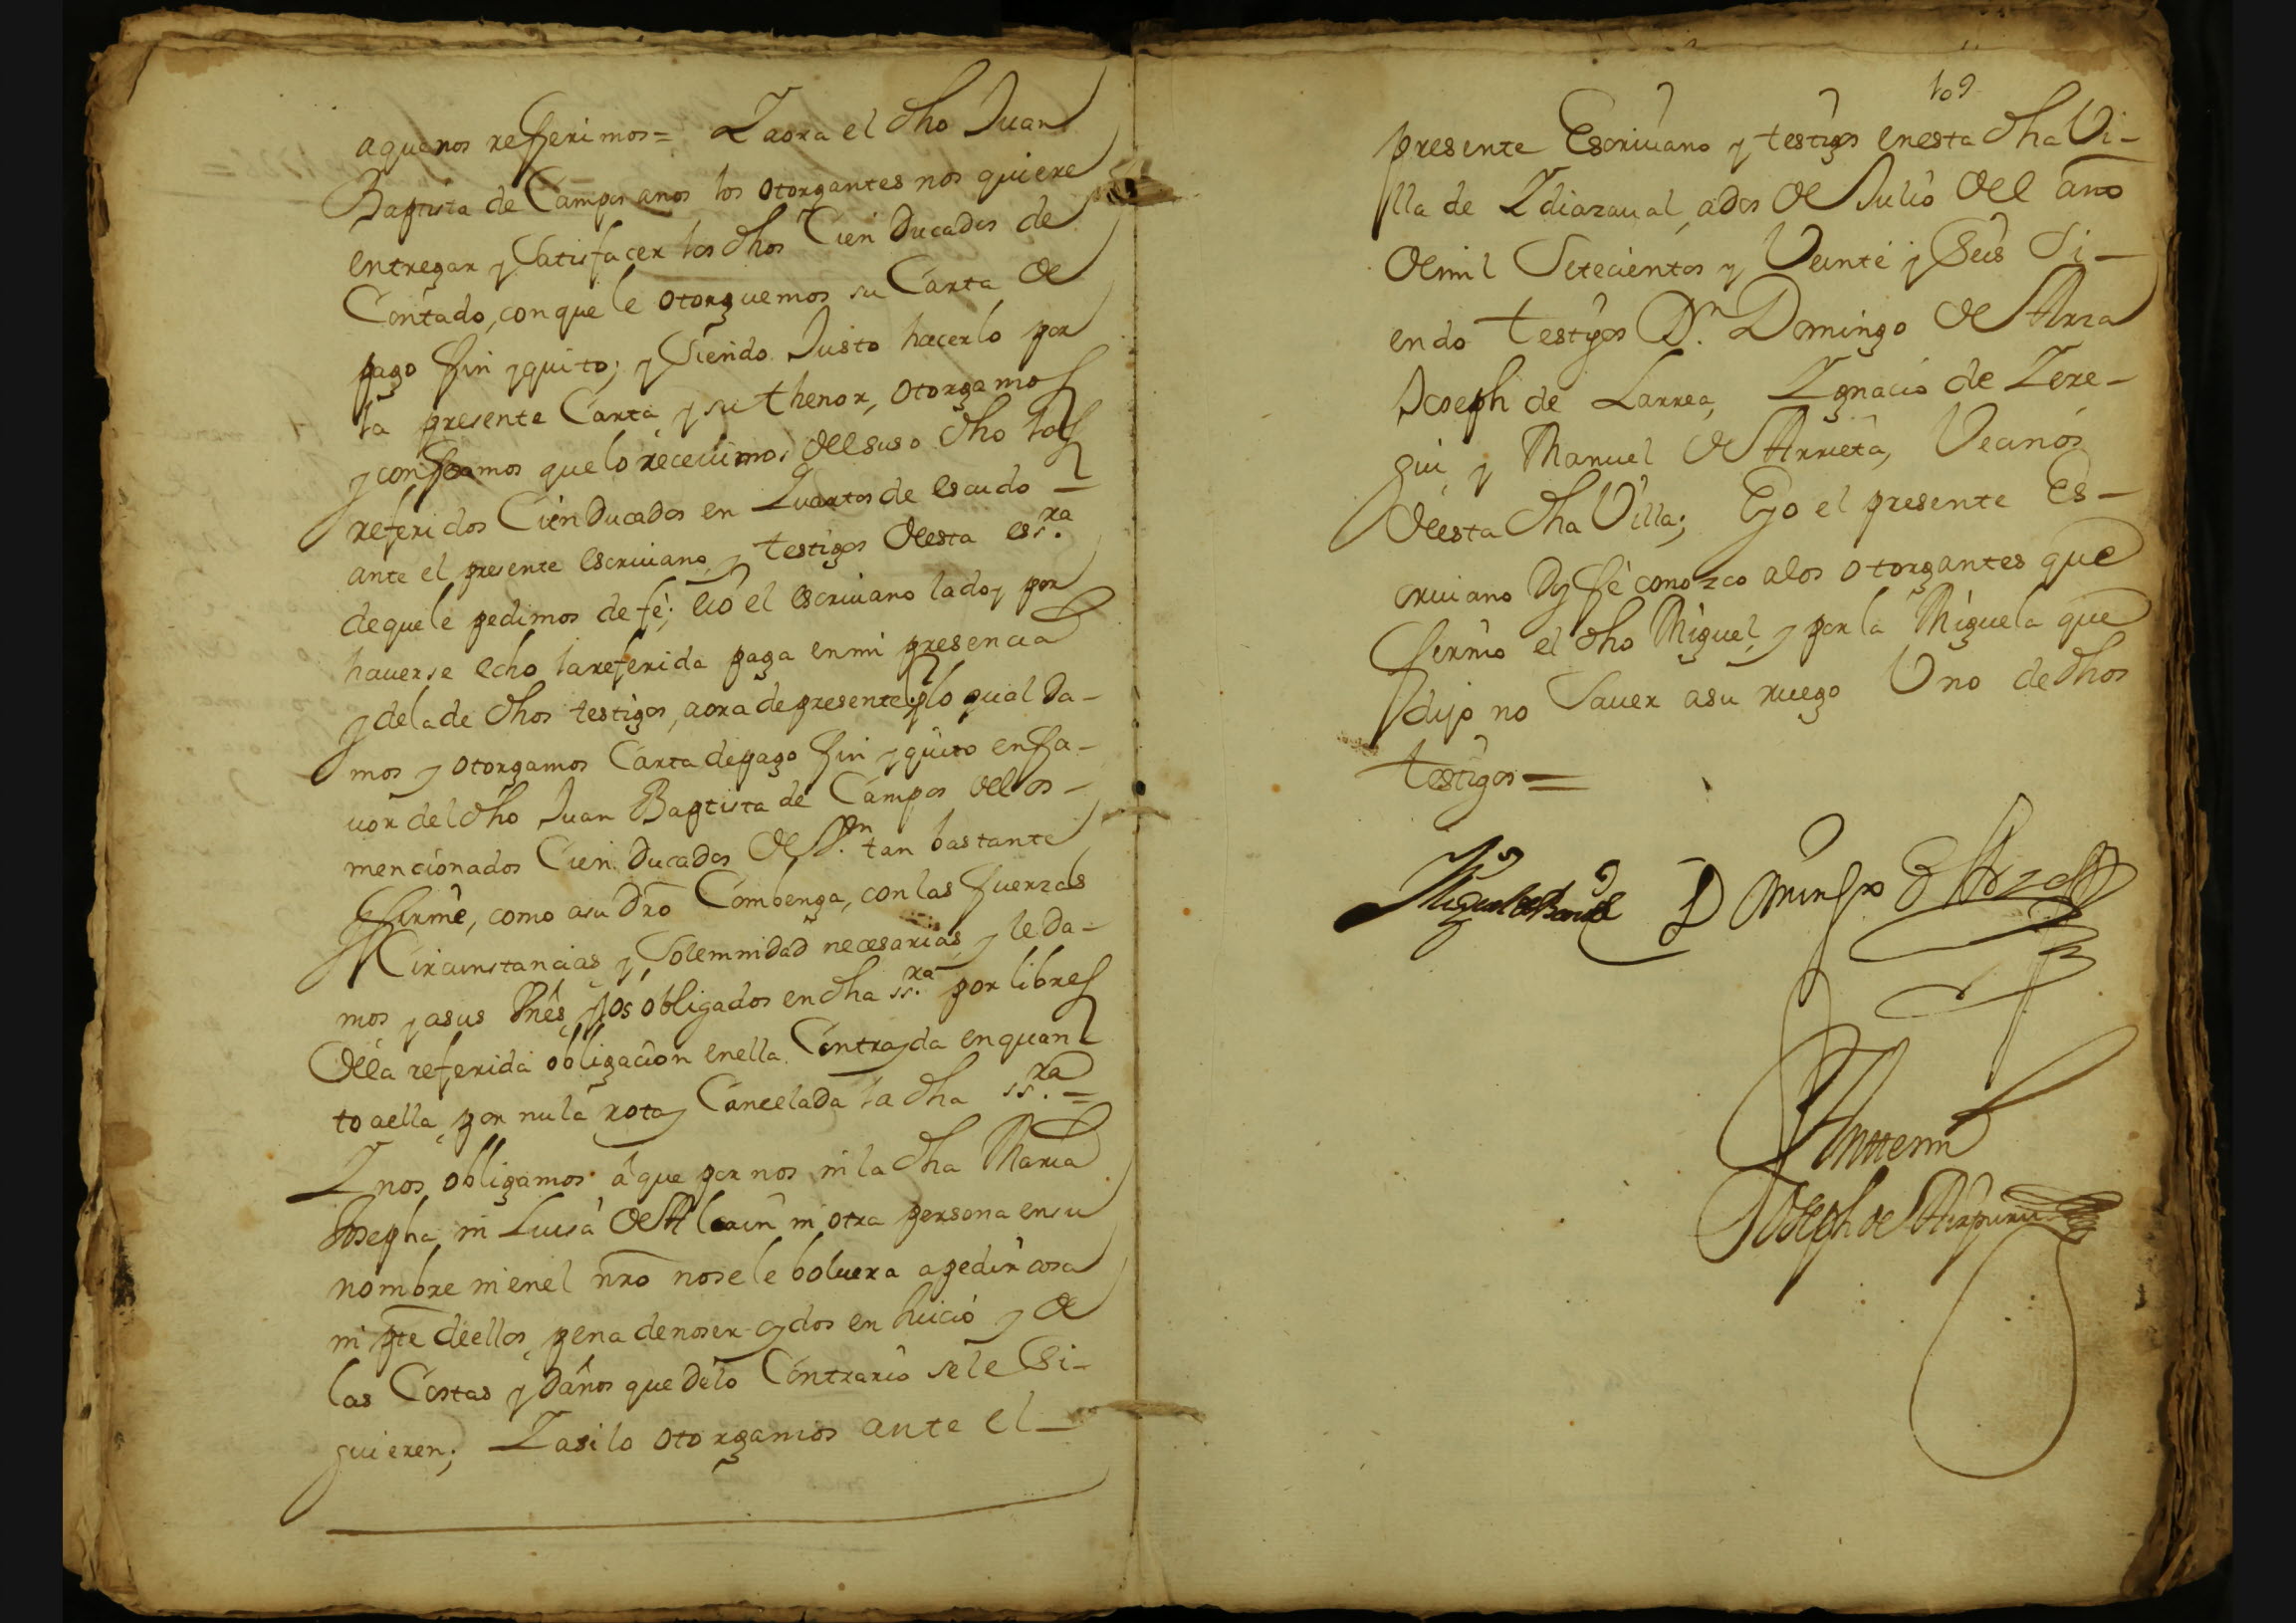 a que nos referimos = Y aora el dho Juan
Baptista de Campos a nos los otorgantes nos quiere
entregar y satisfacer los dhos Cien Ducados de
Contado, con que le otorguemos su Carta de
pago fin y quito; y siendo Justo hacerlo por
la presente Carta y su thenor, otorgamos
y confesamos que lo recevimos del suso dho los
referidos Cien Ducados en Quartos de escudo –
ante el presente escriuano, y testigos de esta esra.
de que le pedimos de fé; e io el escriuano la doy por
hauerse echo la referida paga en mi presencia
y de la de dhos testigos, aora de presente, y lo qual Da-
mos y otorgamos Carta de pago fin y quito en fa-
uor del dho Juan Baptista de Campos de los –
mencionados Cien Ducados de Vn. tan bastante
firme, como a su Dro Combenga, con las fuerzas
Circunstancias y Solemnidad necesarias, y le da-
mos y a sus obligados en dha ssra. por libres
de la referida obligacion en ella Contrayda en quan
to a ella, por nula rota y Cancelada la dha ssra. =
Y nos obligamos á que por nos ni la dha Maria
Josepha, ni Luisa de ni otra persona en su
nombre ni en el nro no se le boluera a pedir cosa
ni pte de ellos, pena de no ser oydos en Juicio y de
las Costas y Daños que de lo Contrario se le si-
guieren; Y asi lo otorgamos ante el –
109
presente Escriuano y testigos en esta dha Vi-
lla de Ydiazaual, a dos de Julio del año
de mil Setecientos y Veinte y Seis Si-
endo testigos Dn. Domingo de Arza
Joseph de Larrea, Ygnacio de Yere-
gui, y Manuel de Arrieta, Vecinos
de esta dha Villa; E yo el presente Es-
criuano Doy fé conozco a los otorgantes que
firmó el dho Miguel, y por la Miguela que
dijo no Sauer a su ruego Uno de dhos
testigos =
Miguel de Domingo de Arza
Antte mi
Joseph de